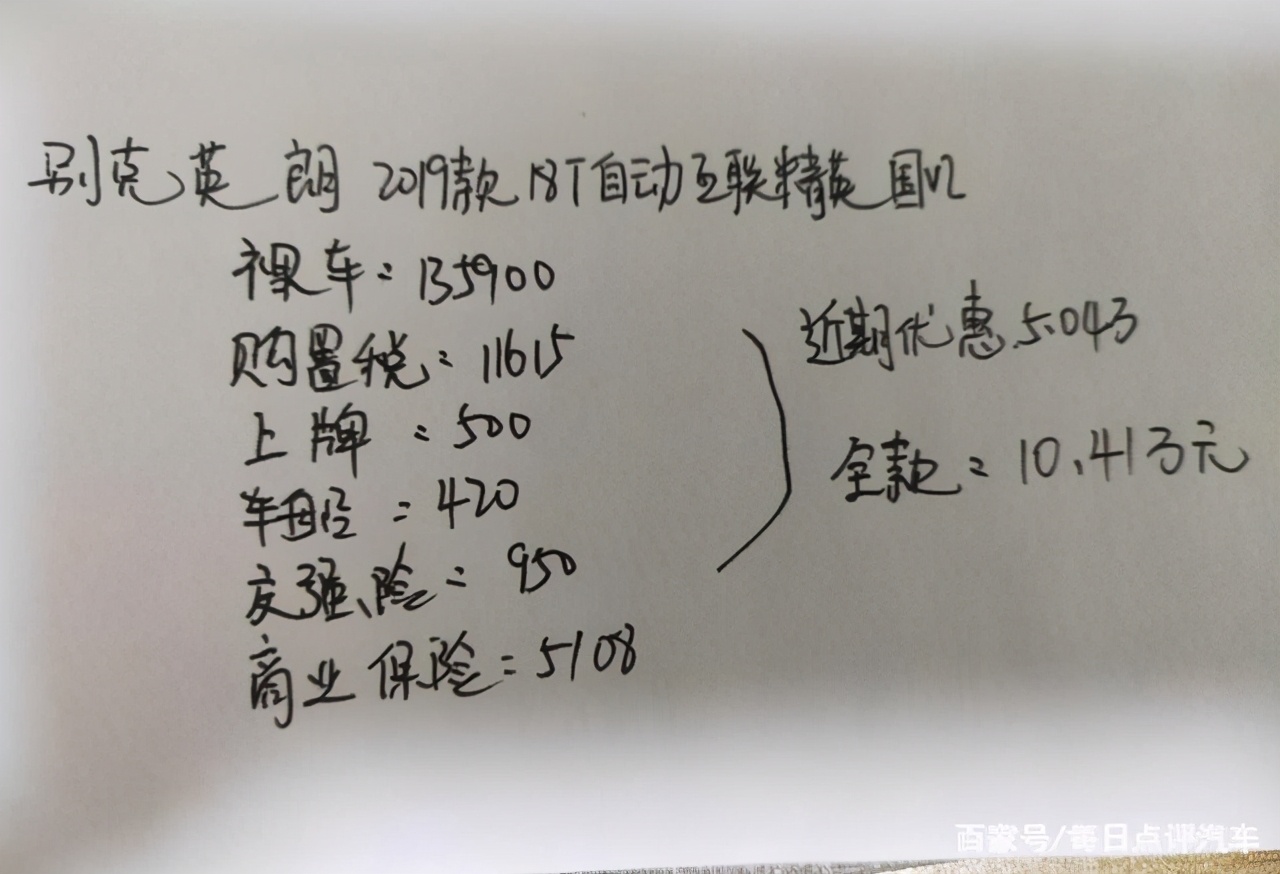 别克英朗 2019款 18T自动互联精英 国VI
裸车:135900
购置税:11615
上牌:500
车船:420
交强险:950
商业保险:5108
近期优惠5.04万
全款:10.41万元
百家号/每日点评汽车